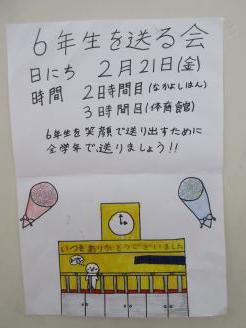 6年生を送る会
日にち 2月21日(金)
時間 2日時間目(なかよしはん)
3時間目(体育館)
6年生を笑顔で送り出すために
全学年で送りましょう!!
いつもありがとうございました